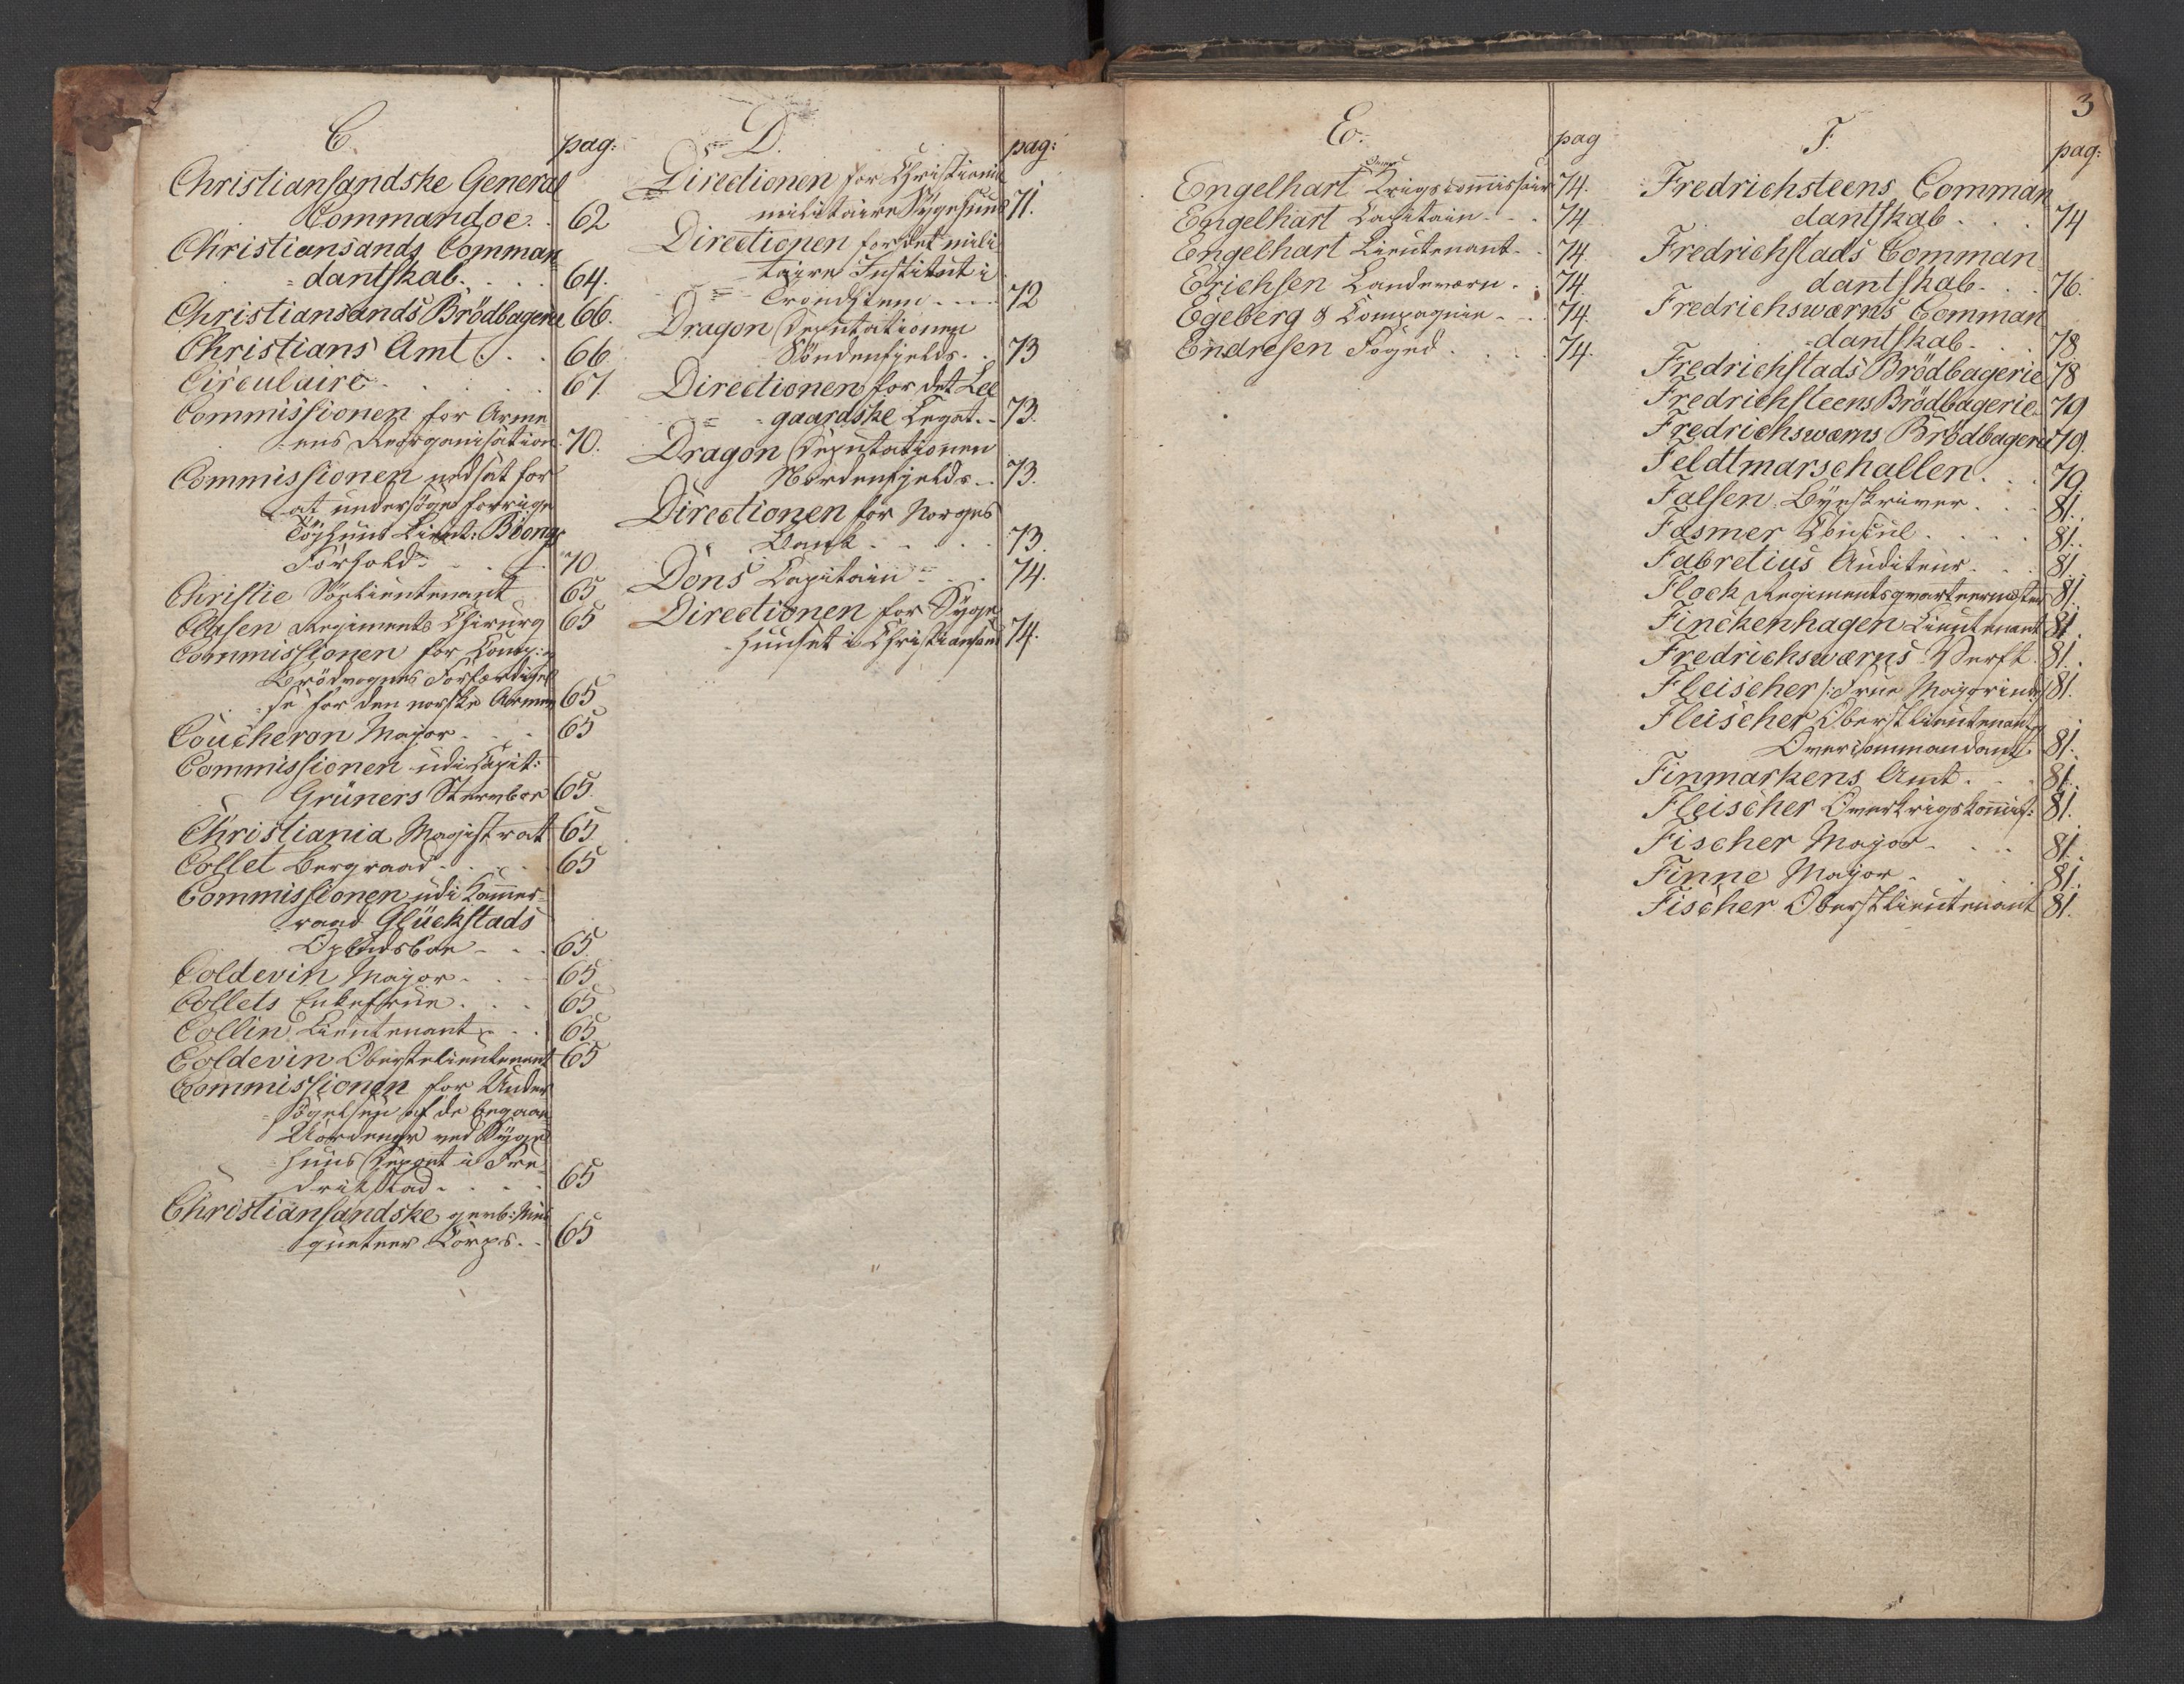 C.
pag:
Christiansandske General
Commandoe. . 62
Christiansands Comman
=dantskab. . . . 64.
Christiansands Brödbagerie 66.
Christians Amt. . . 66
Circulaire . . . . . 67.
Commissionen for Arme
=ens Reorganisation 70.
Commissionen nedsat for
at undersöge forrige
Töyhuus Lieut: Böeng
Forhold . . . . 70
Christie Söelieutenant 65
Clasen Regiments Chirurg 65
Commissionen for Comp:
Brödvognes Forfærdigel
=se for den norske Armee 65
Coucheron Major . . . 65
Commissionen udi Capit:
Grüners Stervboe 65.
Christiania Magistrat 65
Collet Bergraad . . . . 65
Commissionen udi Kammer=
=raad Glückstads
Opbudsboe . . . 65.
Coldevin Major . . . 65
Collets Enkefrue . . . 65
Collin Lieutenant . . . 65.
Coldevin Oberstelieutenant 65
Commissionen for Under
=sögelsen af de begaae
Uordener ved Syge
=huus Depoet i Fre
=drikstad . . . . 65
Christiansandske gevb: Mus
=queteer Corps. . 65
D.
pag:
Directionen for Christiania
militaire Sygehuus 71.
Directionen for det mili
=taire Institut i
Trondhiem . . . . 72
Dragon Deputationen
Söndenfjelds. . 73
Directionen for det Lee
=gaardske Legat. . 73.
Dragon Deputationen
Nordenfjelds . . 73.
Directionen for Norges
Bank . . . . . 73.
Dons Capitain . . . 74.
Directionen for Syge
=huuset i Christiansand 74.
E.
pag
Engelhart Krigscommissair 74.
Engelhart Capitain . . . 74
Engelhart Lieutenant. . 74.
Erichsen Landeværn . . 74.
Egeberg & Compagnie . . . 74.
Endresen Foged . . . . 74.
3
F.
pag:
Fredrichsteens Comman
dantskab . . . 74
Fredrichstads Comman=
dantskab. . . 76.
Fredrichsværns Comman
=dantskab . . . 78.
Fredrichstads Brödbagerie 78
Fredrichsteens Brödbagerie. 79
Fredrichsværns Brödbagerie 79.
Feldtmarschallen . . . 79
Falsen Byeskriver . . . 81.
Fasmer Consul . . . . 81.
Fabretius Auditeur . . . 81.
Flock Regimentsqvarteermester 81.
Finckenhagen Lieutenant 81.
Fredrichsværns Verft. 81.
Fleischer /: Frue Majorinde 81.
Fleischer Oberstlieutenant og
Overcommandant. 81.
Finmarkens Amt . . . 81.
Fleischer Overkrigskommiss: 81.
Fischer Major . . . . 81.
Finne Major . . . . 81.
Fischer Oberstlieutenant 81.